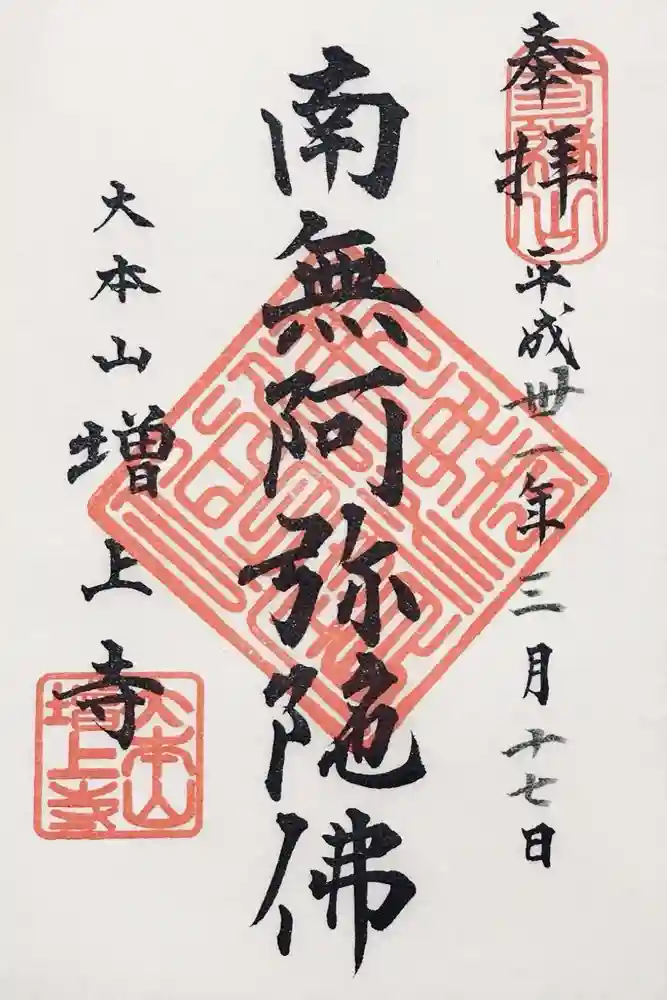 奉拝 平成卅一年三月十七日
南無阿弥陀佛
大本山増上寺
大本山
増上寺